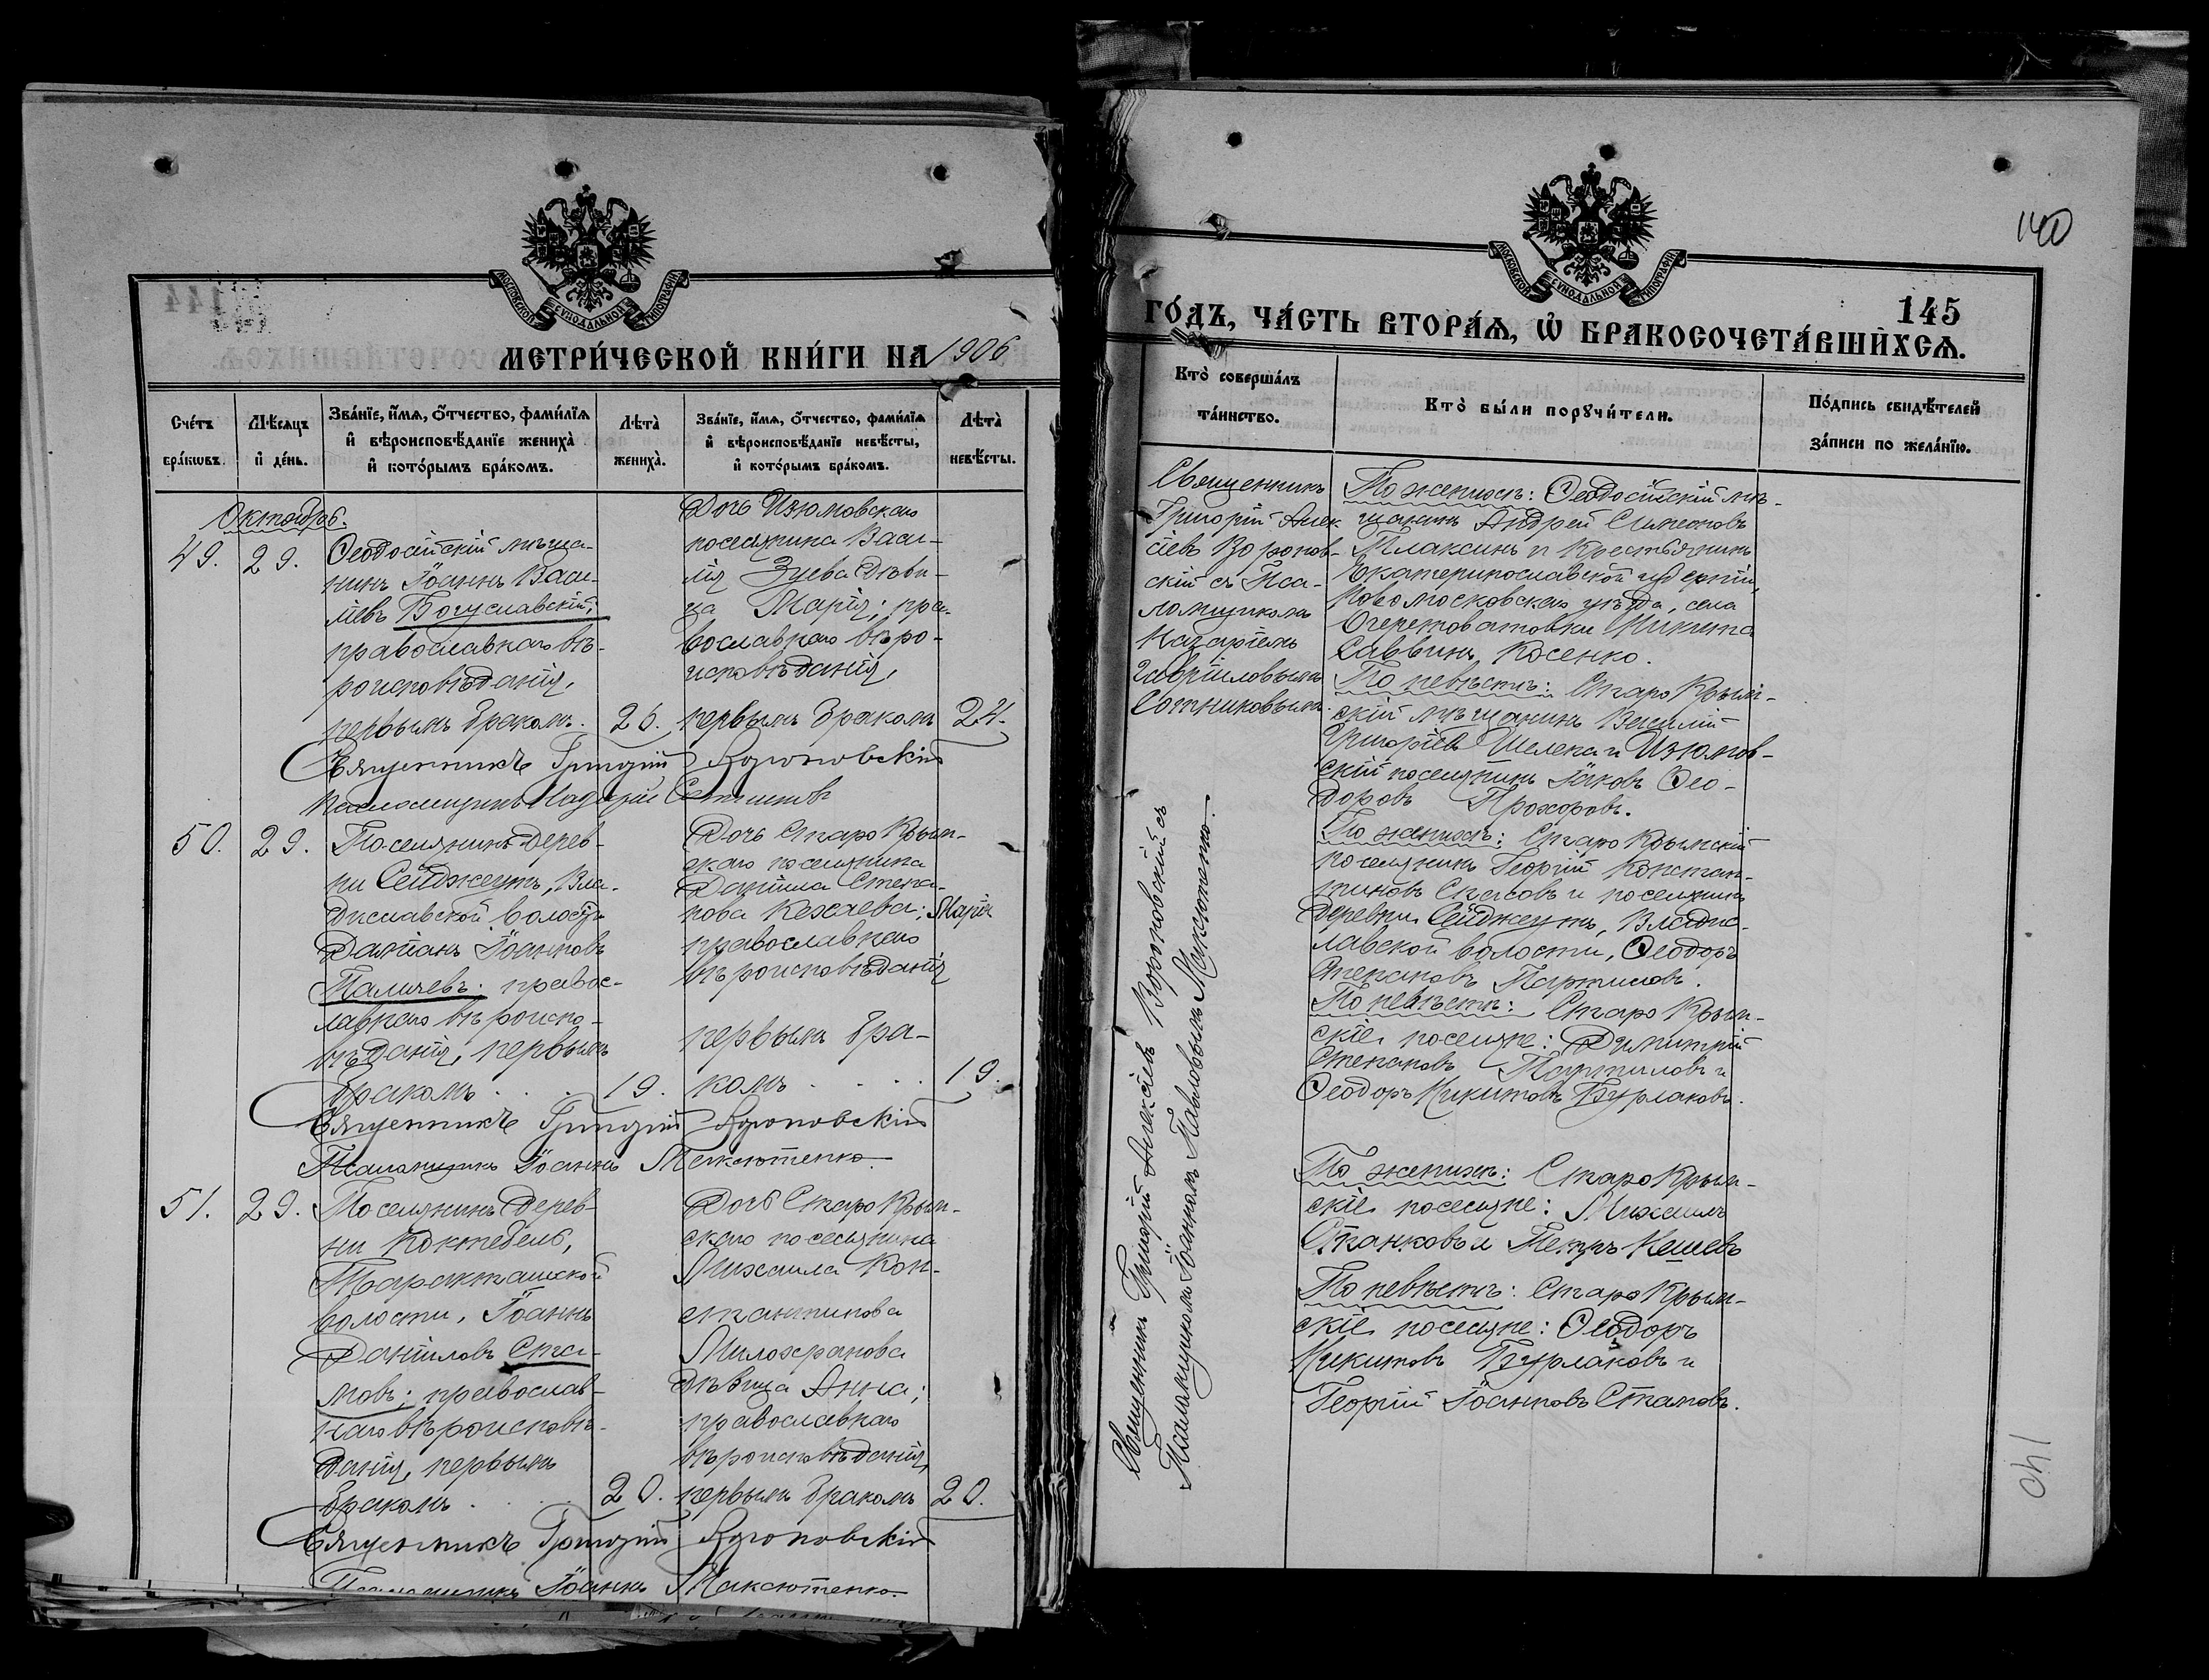 МОСКОВСКОЙ СѴНОДАЛЬНОЙ ТИПОГРАФІИ
144
МЕТРИ́ЧЕСКОЙ КНИ́ГИ НА 1906
Сче́тъ бра́кωвъ.
Мѣ́сяцъ и де́нь.
Зва́нїе, и́мѧ, о́тчество, фами́лїѧ
и вѣроисповѣ́данїе жениха̀
и кото́рымъ бра́комъ.
Лѣта̀ жениха̀.
Зва́нїе, и́мѧ, о́тчество, фами́лїѧ
и вѣроисповѣ́данїе невѣ́сты,
и кото́рымъ бра́комъ.
Лѣта̀ невѣ́сты.
Октябрь.
49. 29.
Ѳеодосійскій мѣща-
нинъ Іоаннъ Васи-
ліевъ Богуславскій;
православнаго вѣ-
роисповѣданія,
первымъ бракомъ. 26.
Дочь Изюмовскаго
поселянина Васи-
лія Зуева дѣви-
ца Марія; пра-
вославнаго вѣро-
исповѣданія,
первымъ бракомъ 24.
Священникъ Григорій Вороновскій
Псаломщикъ Назарій Сотниковъ
50. 29.
Поселянинъ дерев-
ни Сейджеутъ, Вла-
диславской волости
Даміанъ Іоанновъ
Паличевъ; правос-
лавнаго вѣроиспо-
вѣданія, первымъ
бракомъ . . . 19.
Дочь Старо Крым-
скаго поселянина
Даніила Степа-
нова Кехаева; Марія
православнаго
вѣроисповѣданія
первымъ бра-
комъ . . . . 19.
Священникъ Григорій Вороновскій
Псаломщикъ Іоаннъ Максютенко.
51. 29.
Поселянинъ дерев-
ни Коктебель,
Таракташской
волости, Іоаннъ
Даніиловъ Ста-
мовъ; православ-
наго вѣроисповѣ-
данія, первымъ
бракомъ . . . 20.
Дочь Старо Крым-
скаго поселянина
Михаила Кон-
стантинова
Милохранова
дѣвица Анна;
православнаго
вѣроисповѣданія,
первымъ бракомъ 20.
Священникъ Григорій Вороновскій
Псаломщикъ Іоаннъ Максютенко.
140
МОСКОВСКОЙ СѴНОДАЛЬНОЙ ТИПОГРАФІИ
145
ГО́ДЪ, ЧА́СТЬ ВТОРА́Ѧ, Ѽ БРАКОСОЧЕТА́ВШИХСѦ.
Кто̀ соверша́лъ
та́инство.
Кто̀ бы́ли порꙋчи́тели.
По́дпись свидѣ́телей
за́писи по жела́нїю.
Священникъ
Григорій Алек
сіевъ Воронов-
скій съ Пса-
ломщикомъ
Назаріемъ
Гавріиловымъ
Сотниковымъ.
По женихѣ: Ѳеодосійскій мѣ-
щанинъ Андрей Симеоновъ
Плаксинъ и крестьянинъ
Екатеринославской губерніи,
Новомосковскаго уѣзда, села
Очеретоватовки Никита
Саввинъ Косенко.
По невѣстѣ: Старо Крым-
скій мѣщанинъ Василій
Григоріевъ Шелека и Изюмов-
скій поселянинъ Іаковъ Ѳео-
доровъ Прохоровъ.
По женихѣ: Старо Крымскій
поселянинъ Георгій Констан-
тиновъ Спасовъ и поселянинъ
деревни Сейджеутъ, Владис-
лавской волости, Ѳеодоръ
Степановъ Партиловъ.
По невѣстѣ: Старо Крым-
скіе поселяне: Димитрій
Степановъ Партиловъ и
Ѳеодоръ Никитовъ Бурлаковъ.
По женихѣ: Старо Крым-
скіе поселяне: Михаилъ
Станковъ и Петръ Кешевъ
По невѣстѣ: Старо Крым-
скіе поселяне: Ѳеодоръ
Никитовъ Бурлаковъ и
Георгій Іоанновъ Стамовъ.
Священникъ Григорій Алексіевъ Вороновскій съ
Псаломщикомъ Іоанномъ Павловымъ Максютенко.
140